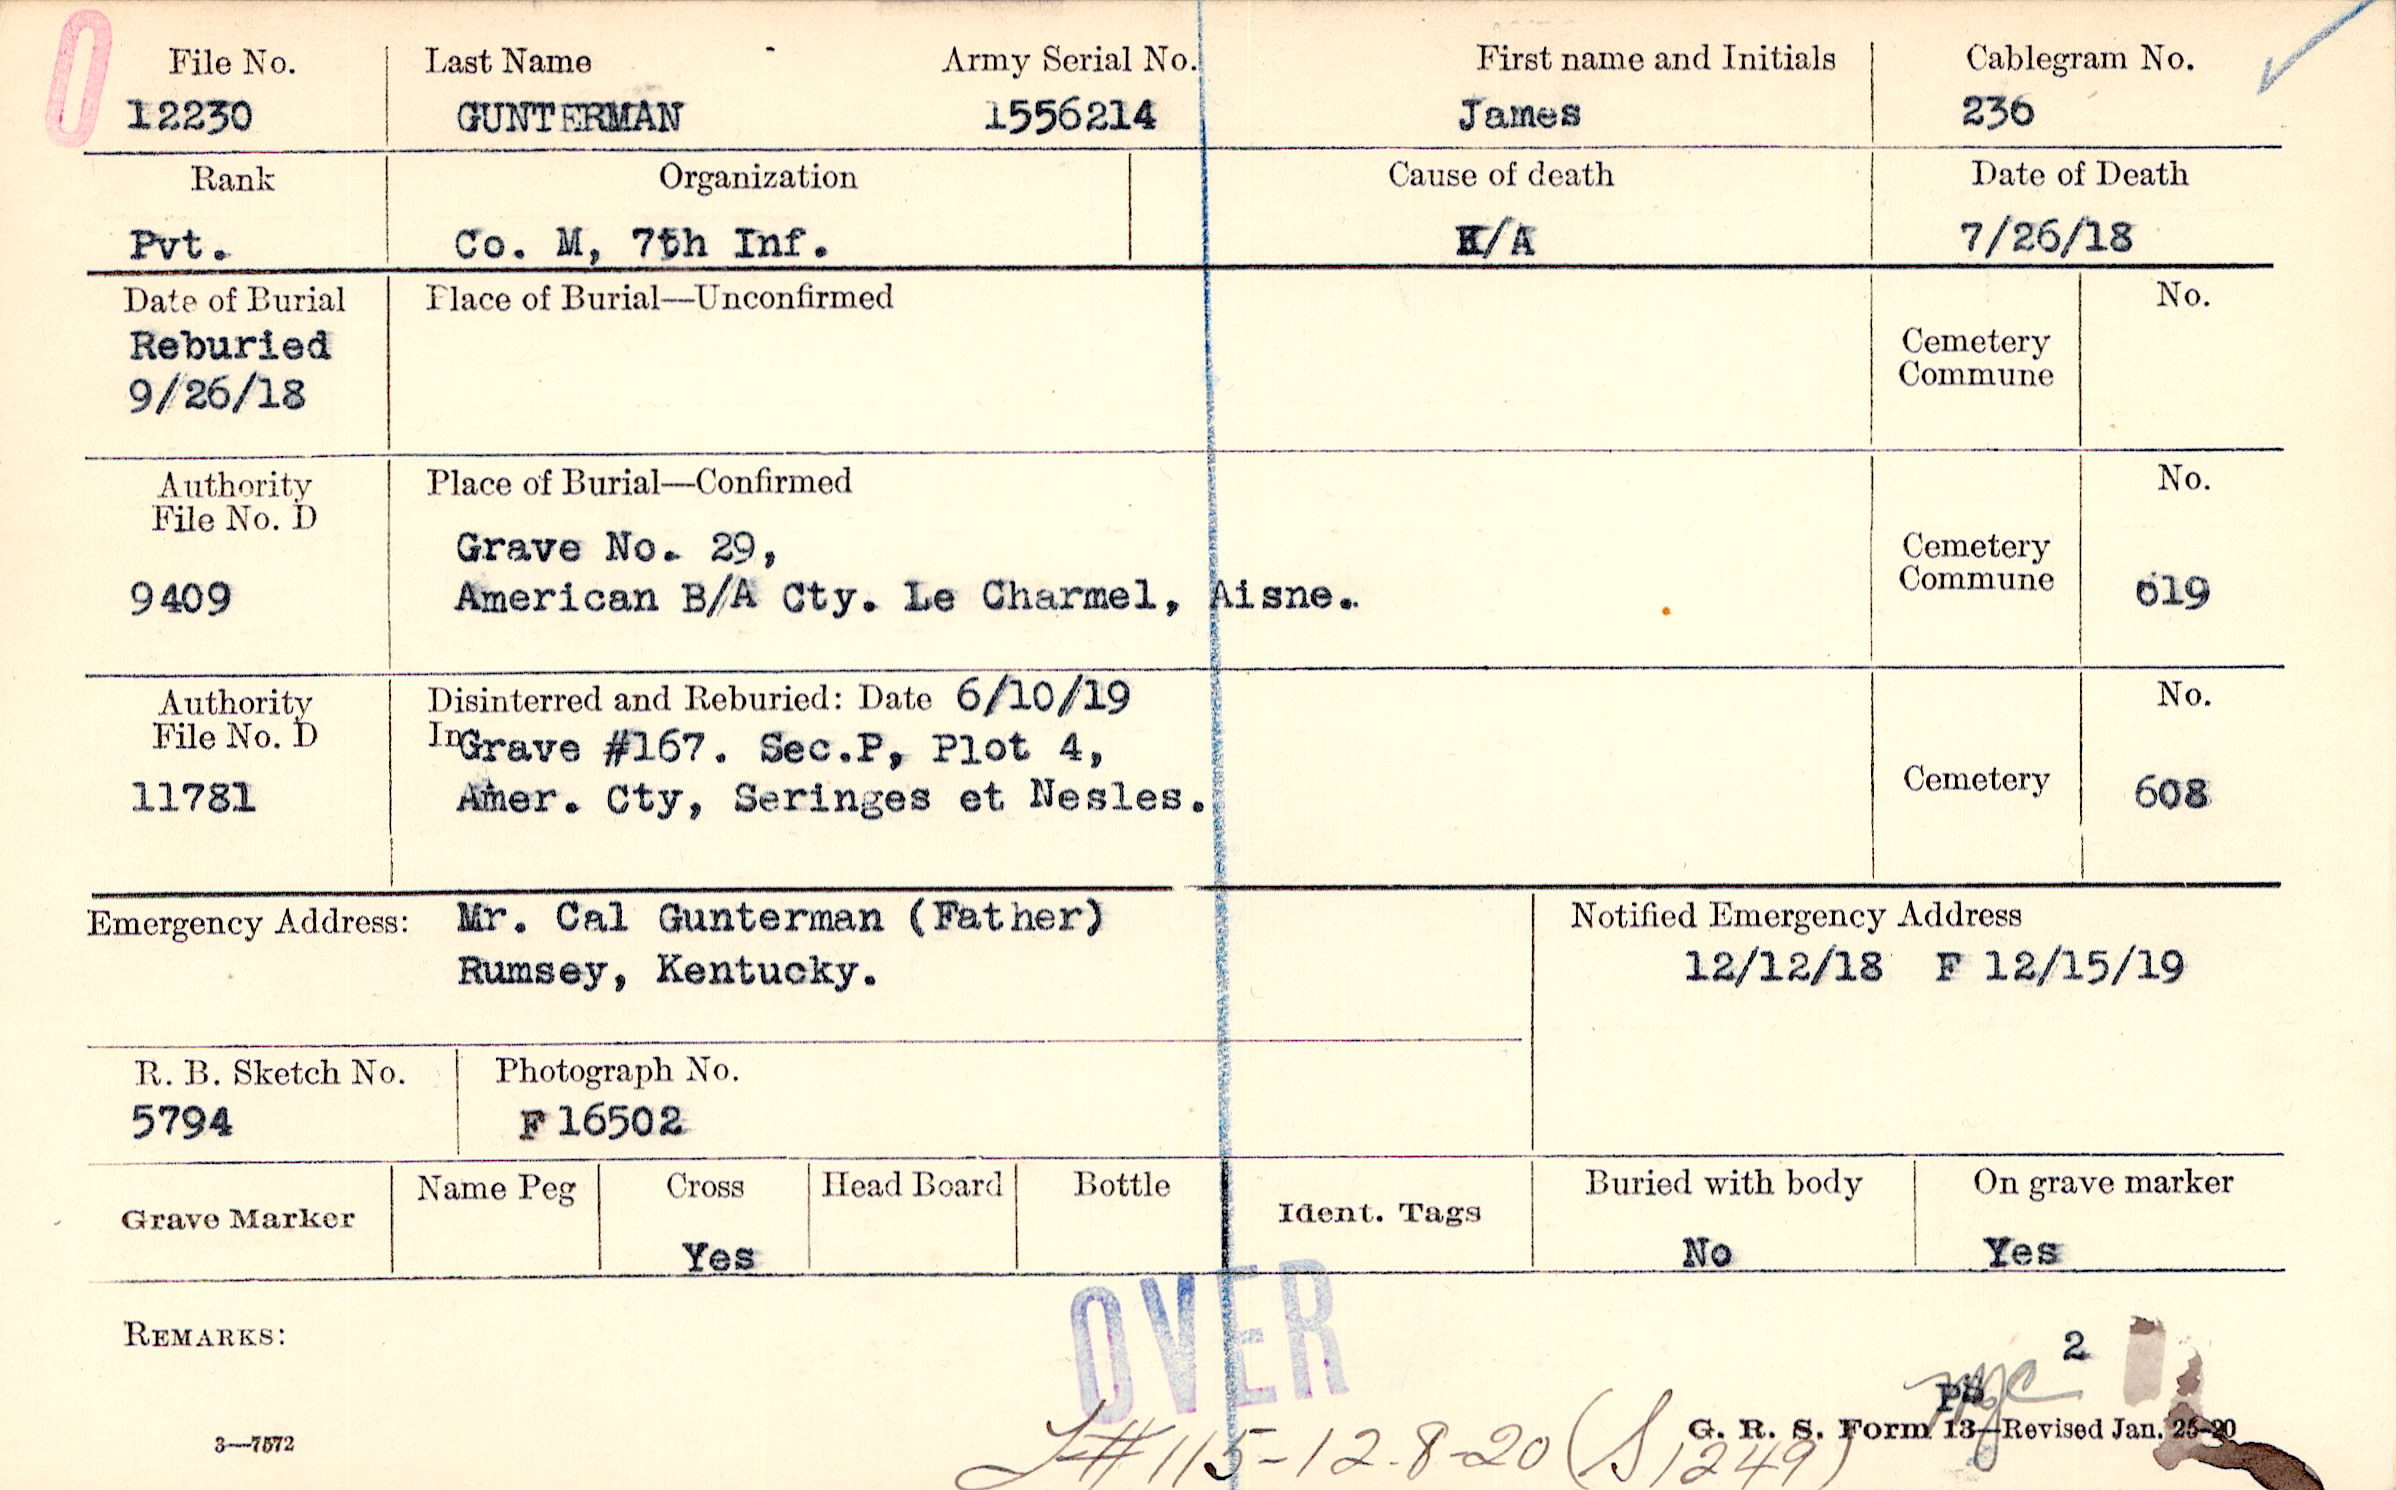 O
File No. Last Name Army Serial No. First name and Initials Cablegram No.
12230 GUNTERMAN 1556214 James 236
Rank Organization Cause of death Date of Death
Pvt. Co. M, 7th Inf. K/A 7/26/18
Date of Burial Place of Burial—Unconfirmed No.
Reburied
9/26/18
Cemetery
Commune
Authority Place of Burial—Confirmed No.
File No. D
Grave No. 29,
Cemetery
Commune
9409 American B/A Cty. Le Charmel, Aisne. 619
Authority Disinterred and Reburied: Date 6/10/19 No.
File No. D In Grave #167. Sec.P, Plot 4,
11781 Amer. Cty, Seringes et Nesles. Cemetery 608
Emergency Address: Mr. Cal Gunterman (Father) Notified Emergency Address
Rumsey, Kentucky. 12/12/18 F 12/15/19
R. B. Sketch No. Photograph No.
5794 F 16502
Name Peg Cross Head Board Bottle Buried with body On grave marker
Grave Marker Ident. Tags
Yes No Yes
OVER
REMARKS:
2
G. R. S. Form 13—Revised Jan. 25-20
3—7572
#115-12-8-20 (S1249)